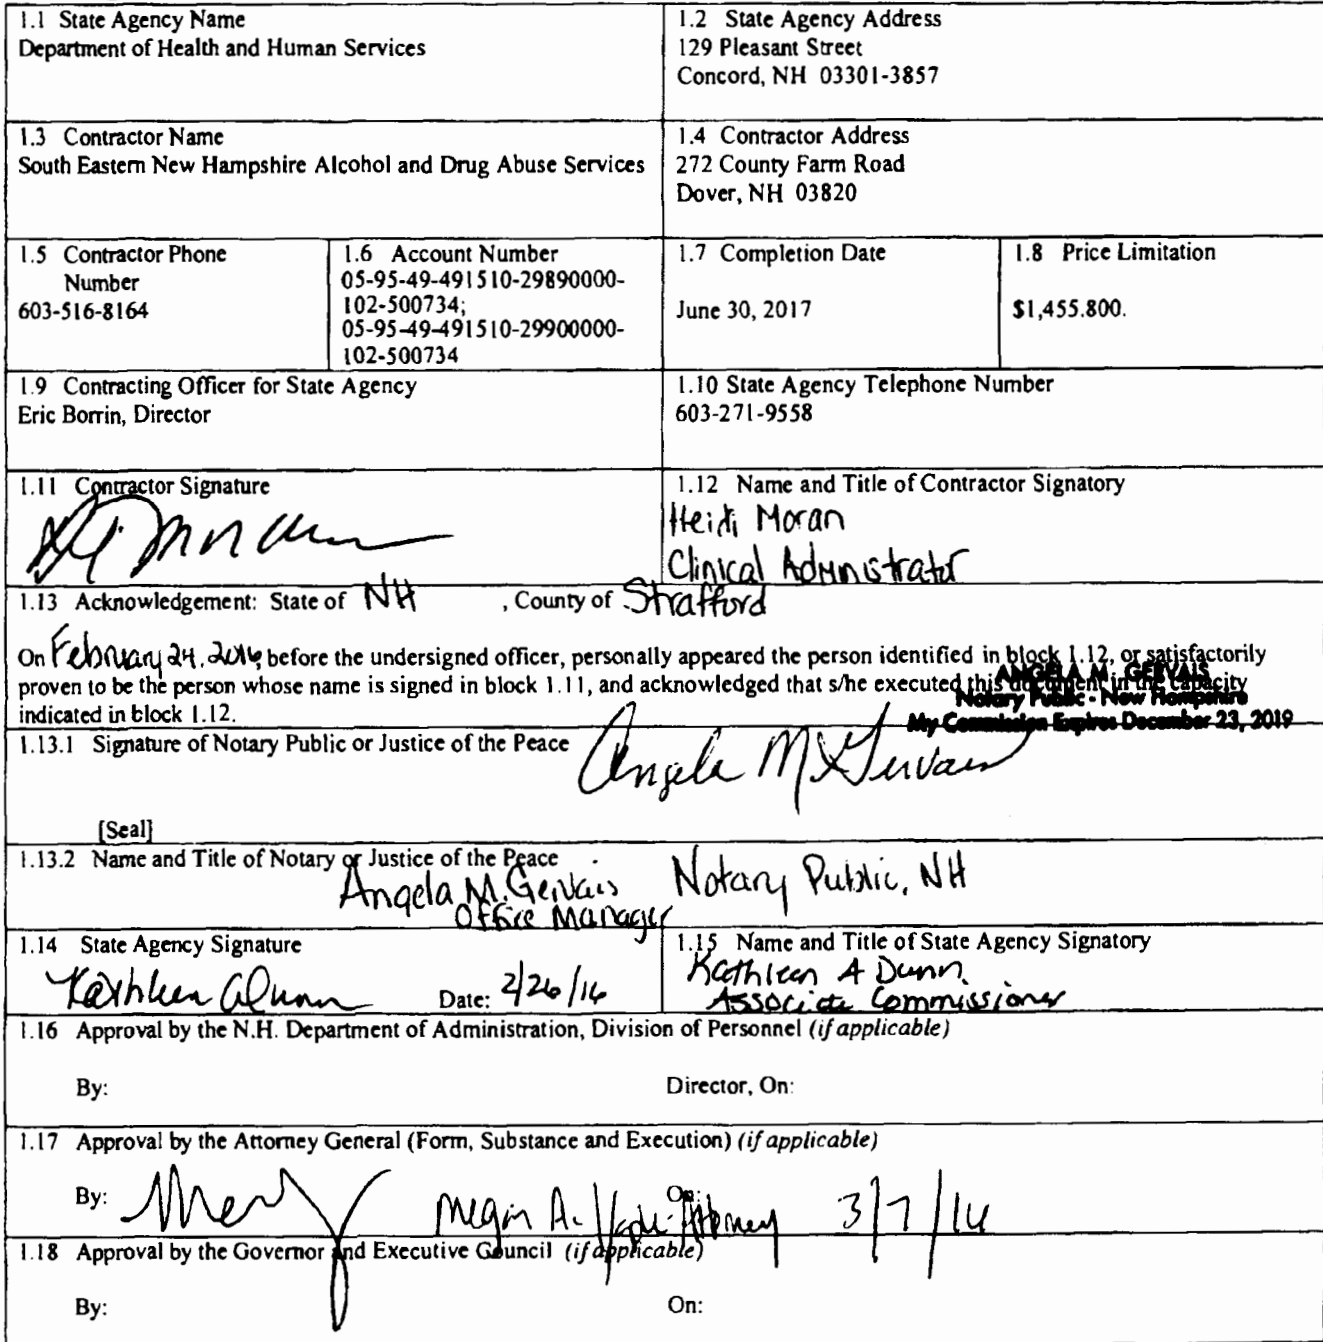 1.1 State Agency Name
Department of Health and Human Services
1.2 State Agency Address
129 Pleasant Street
Concord, NH 03301-3857
1.3 Contractor Name
South Eastern New Hampshire Alcohol and Drug Abuse Services
1.4 Contractor Address
272 County Farm Road
Dover, NH 03820
1.5 Contractor Phone
Number
603-516-8164
1.6 Account Number
05-95-49-491510-29890000-
102-500734;
05-95-49-491510-29900000-
102-500734
1.7 Completion Date
June 30, 2017
1.8 Price Limitation
$1,455.800.
1.9 Contracting Officer for State Agency
Eric Borrin, Director
1.10 State Agency Telephone Number
603-271-9558
1.11 Contractor Signature
1.12 Name and Title of Contractor Signatory
Heidi Moran
Clinical Administrator
1.13 Acknowledgement: State of NH , County of Strafford
On February 24, 2016, before the undersigned officer, personally appeared the person identified in block 1.12, or satisfactorily
proven to be the person whose name is signed in block 1.11, and acknowledged that s/he executed this document in the capacity
indicated in block 1.12.
ANGELA M. GERVAIS
Notary Public - New Hampshire
My Commission Expires December 23, 2019
1.13.1 Signature of Notary Public or Justice of the Peace
Angela M Gervais
[Seal]
1.13.2 Name and Title of Notary or Justice of the Peace
Angela M. Gervais Notary Public, NH
Office Manager
1.14 State Agency Signature
Kathleen A Dunn Date: 2/26/16
1.15 Name and Title of State Agency Signatory
Kathleen A Dunn
Associate Commissioner
1.16 Approval by the N.H. Department of Administration, Division of Personnel (if applicable)
By: Director, On:
1.17 Approval by the Attorney General (Form, Substance and Execution) (if applicable)
By: Megan A. Attorney On: 3/7/16
1.18 Approval by the Governor and Executive Council (if applicable)
By: On: